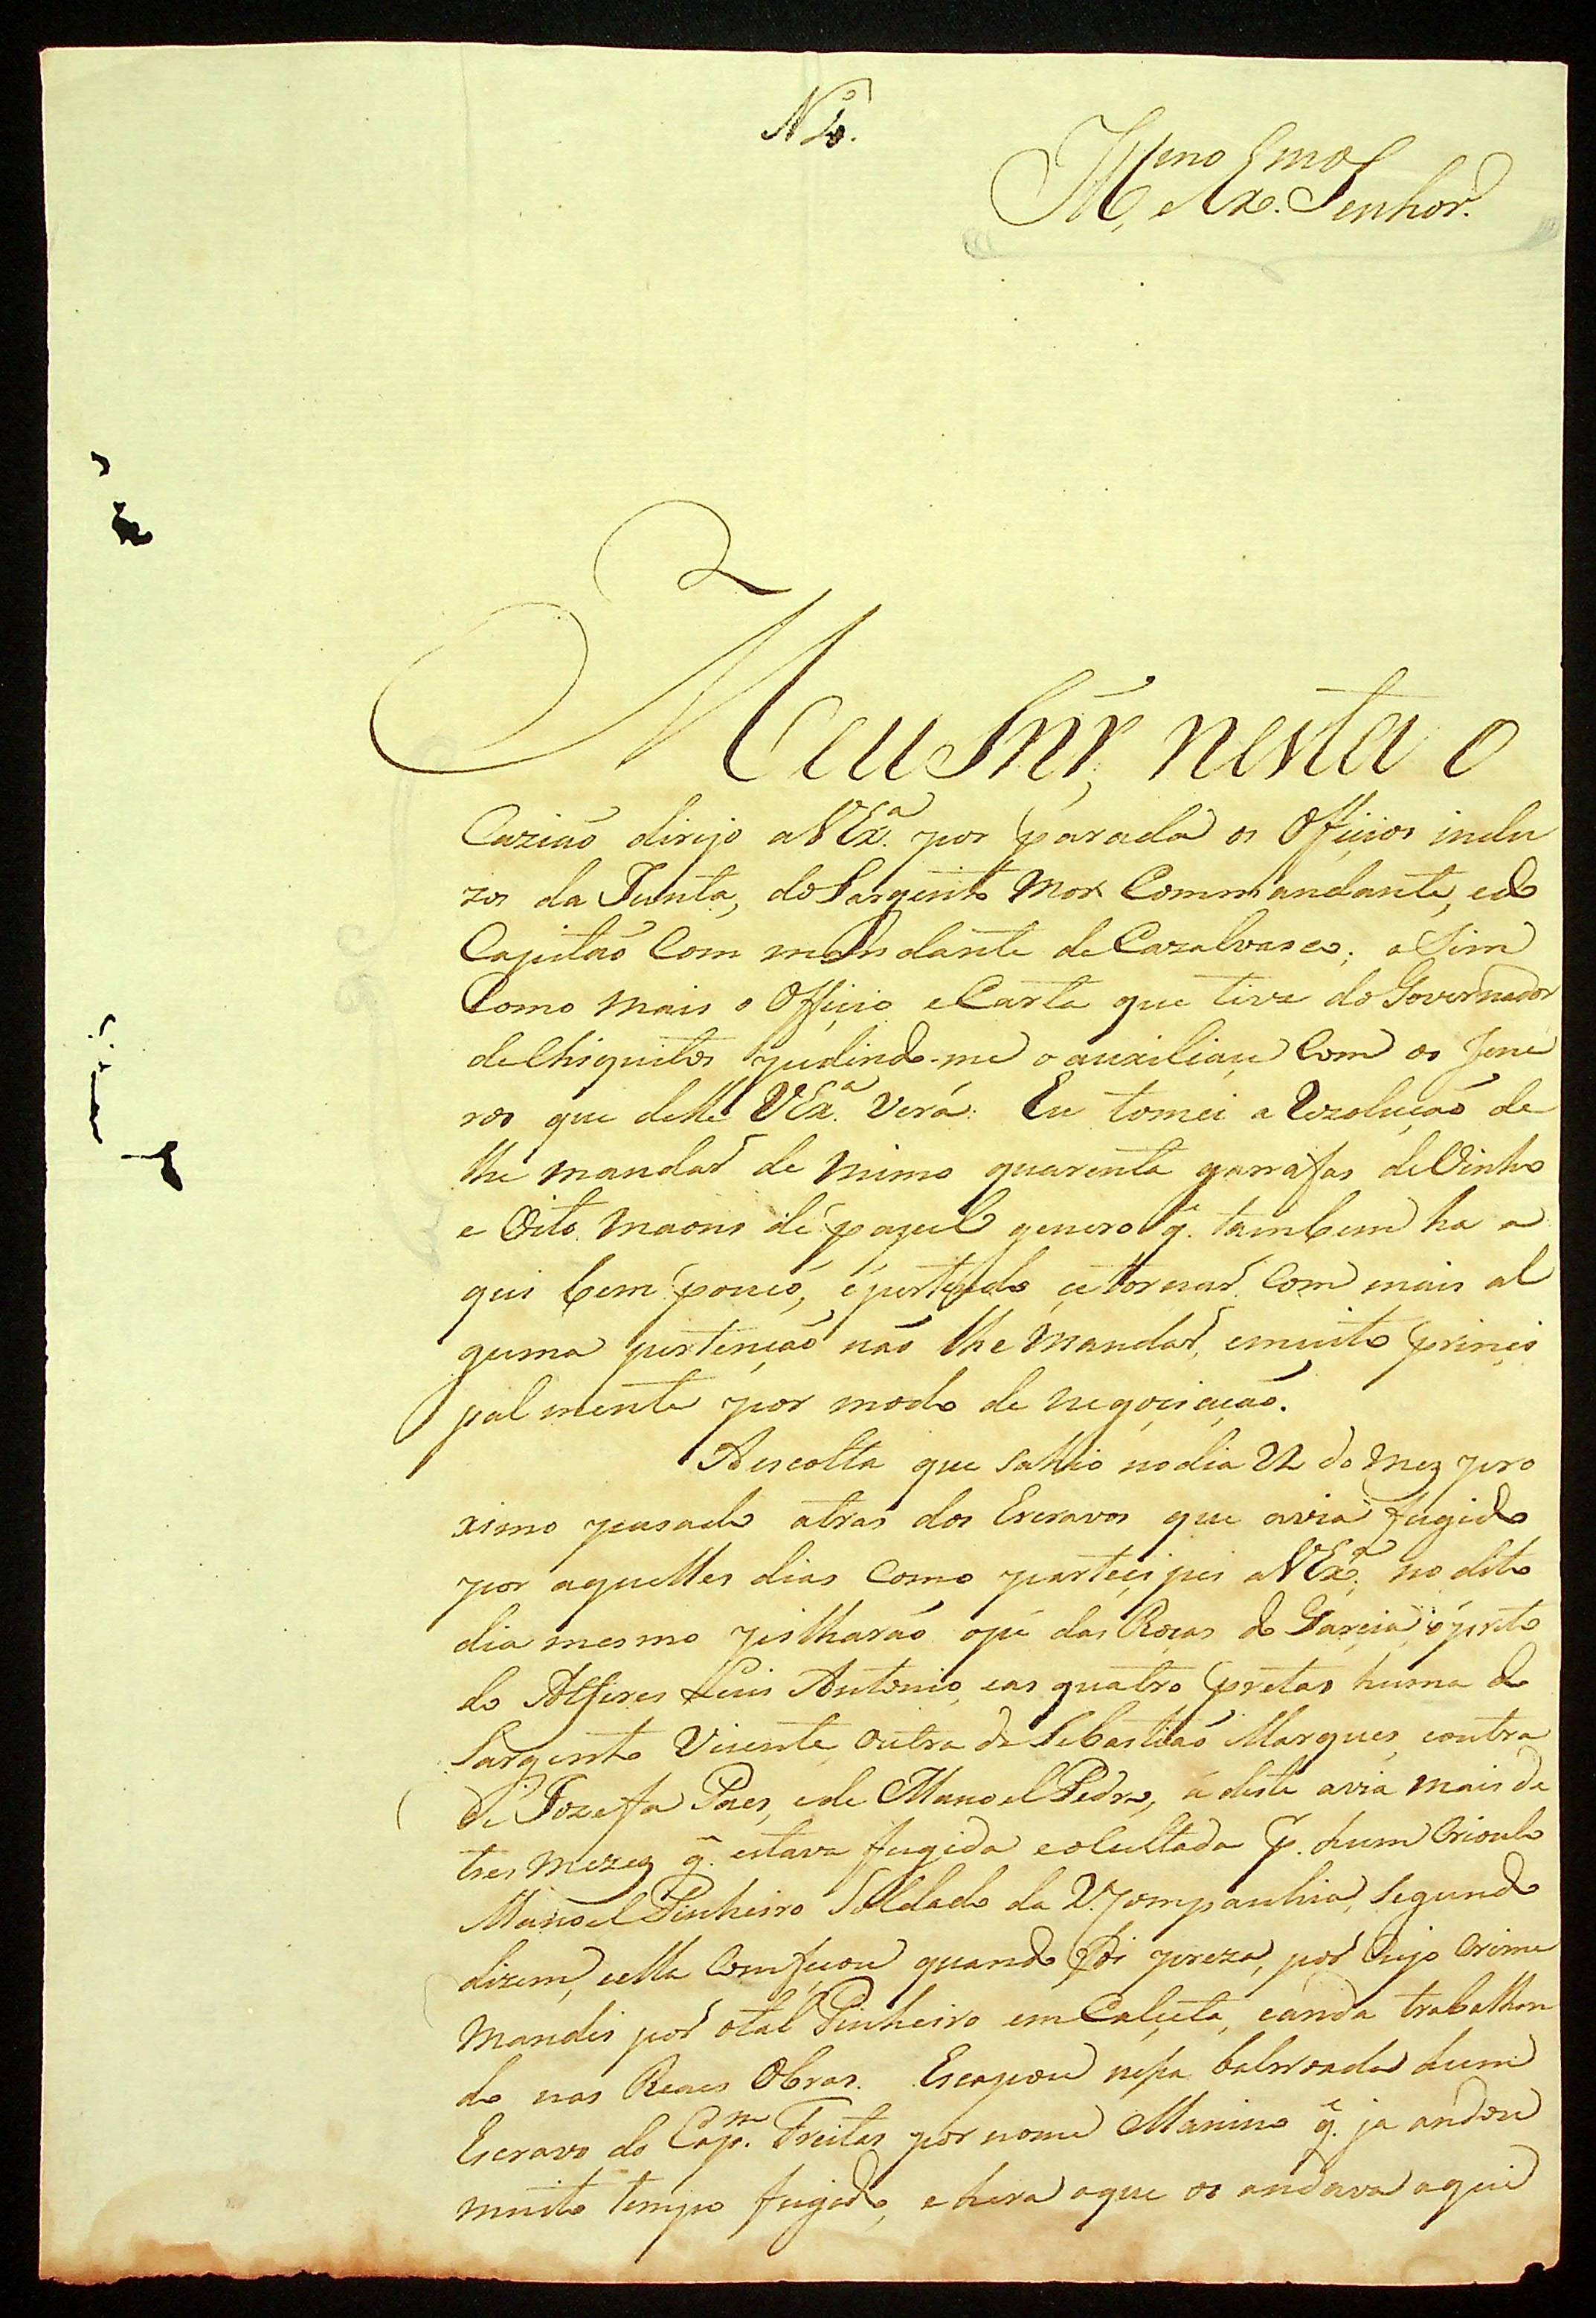 N
Ill.mo e Ex.mo Senhor.
Meu Snr', nesta o
Cazião dirijo a V Ex.ª por parada os Offiçios inclu
zos da Junta, do Sargento Mor Commandante, e do
Capitão Com mandante de Cazalvasco; a Sim
Como mais o Offiçio e Carta que tive do Governador
de Chiquitos pedindo-me o auxiliaçe Com os Jene
ros que delle V Ex.ª Verá: Eu tomei a Rezolução de
lhe mandar de mimo quarenta garrafas de Vinho
e Oito maons de papel genero q̃. tambem ha a
qui bem pouco, e pertendo ce tornar Com mais al
guma pertenção não lhe Mandar, e muito prinçi
pal mente por modo de negoçiação.
A escolta que sahio no dia 22 do Mez pro
ximo pasado atras dos Escravos que avia fugido
por aquelles dias Como parteçipei a V Ex.ª; no dito
dia mesmo pilharão o pé das Rocas do Garçia o preto
do Alferes Luis Antonio, e as quatro pretas huma do
Sargento Vicente, Outra de Sebastião Marques, e outra
de Jozefa Paes, e de Manoel Pedro, a deste avia mais de
tres Mezez q̃. estava fugida e olcultada p. hum Crioulo
Manoel Pinheiro Soldado da 2. Companhia, Segundo
dizem, e ella Comfeçou quando foi preza, por Cujo Crime
Mandei por o tal Pinheiro em Calçeta, e anda trabalhan
do nas Reaes Obras. Escapou neʃsa balrroada hum
Escravo do Cap.m Freitas por nome Manino q̃. ja andou
muito tempo fugido, e hera o que os andava aqui